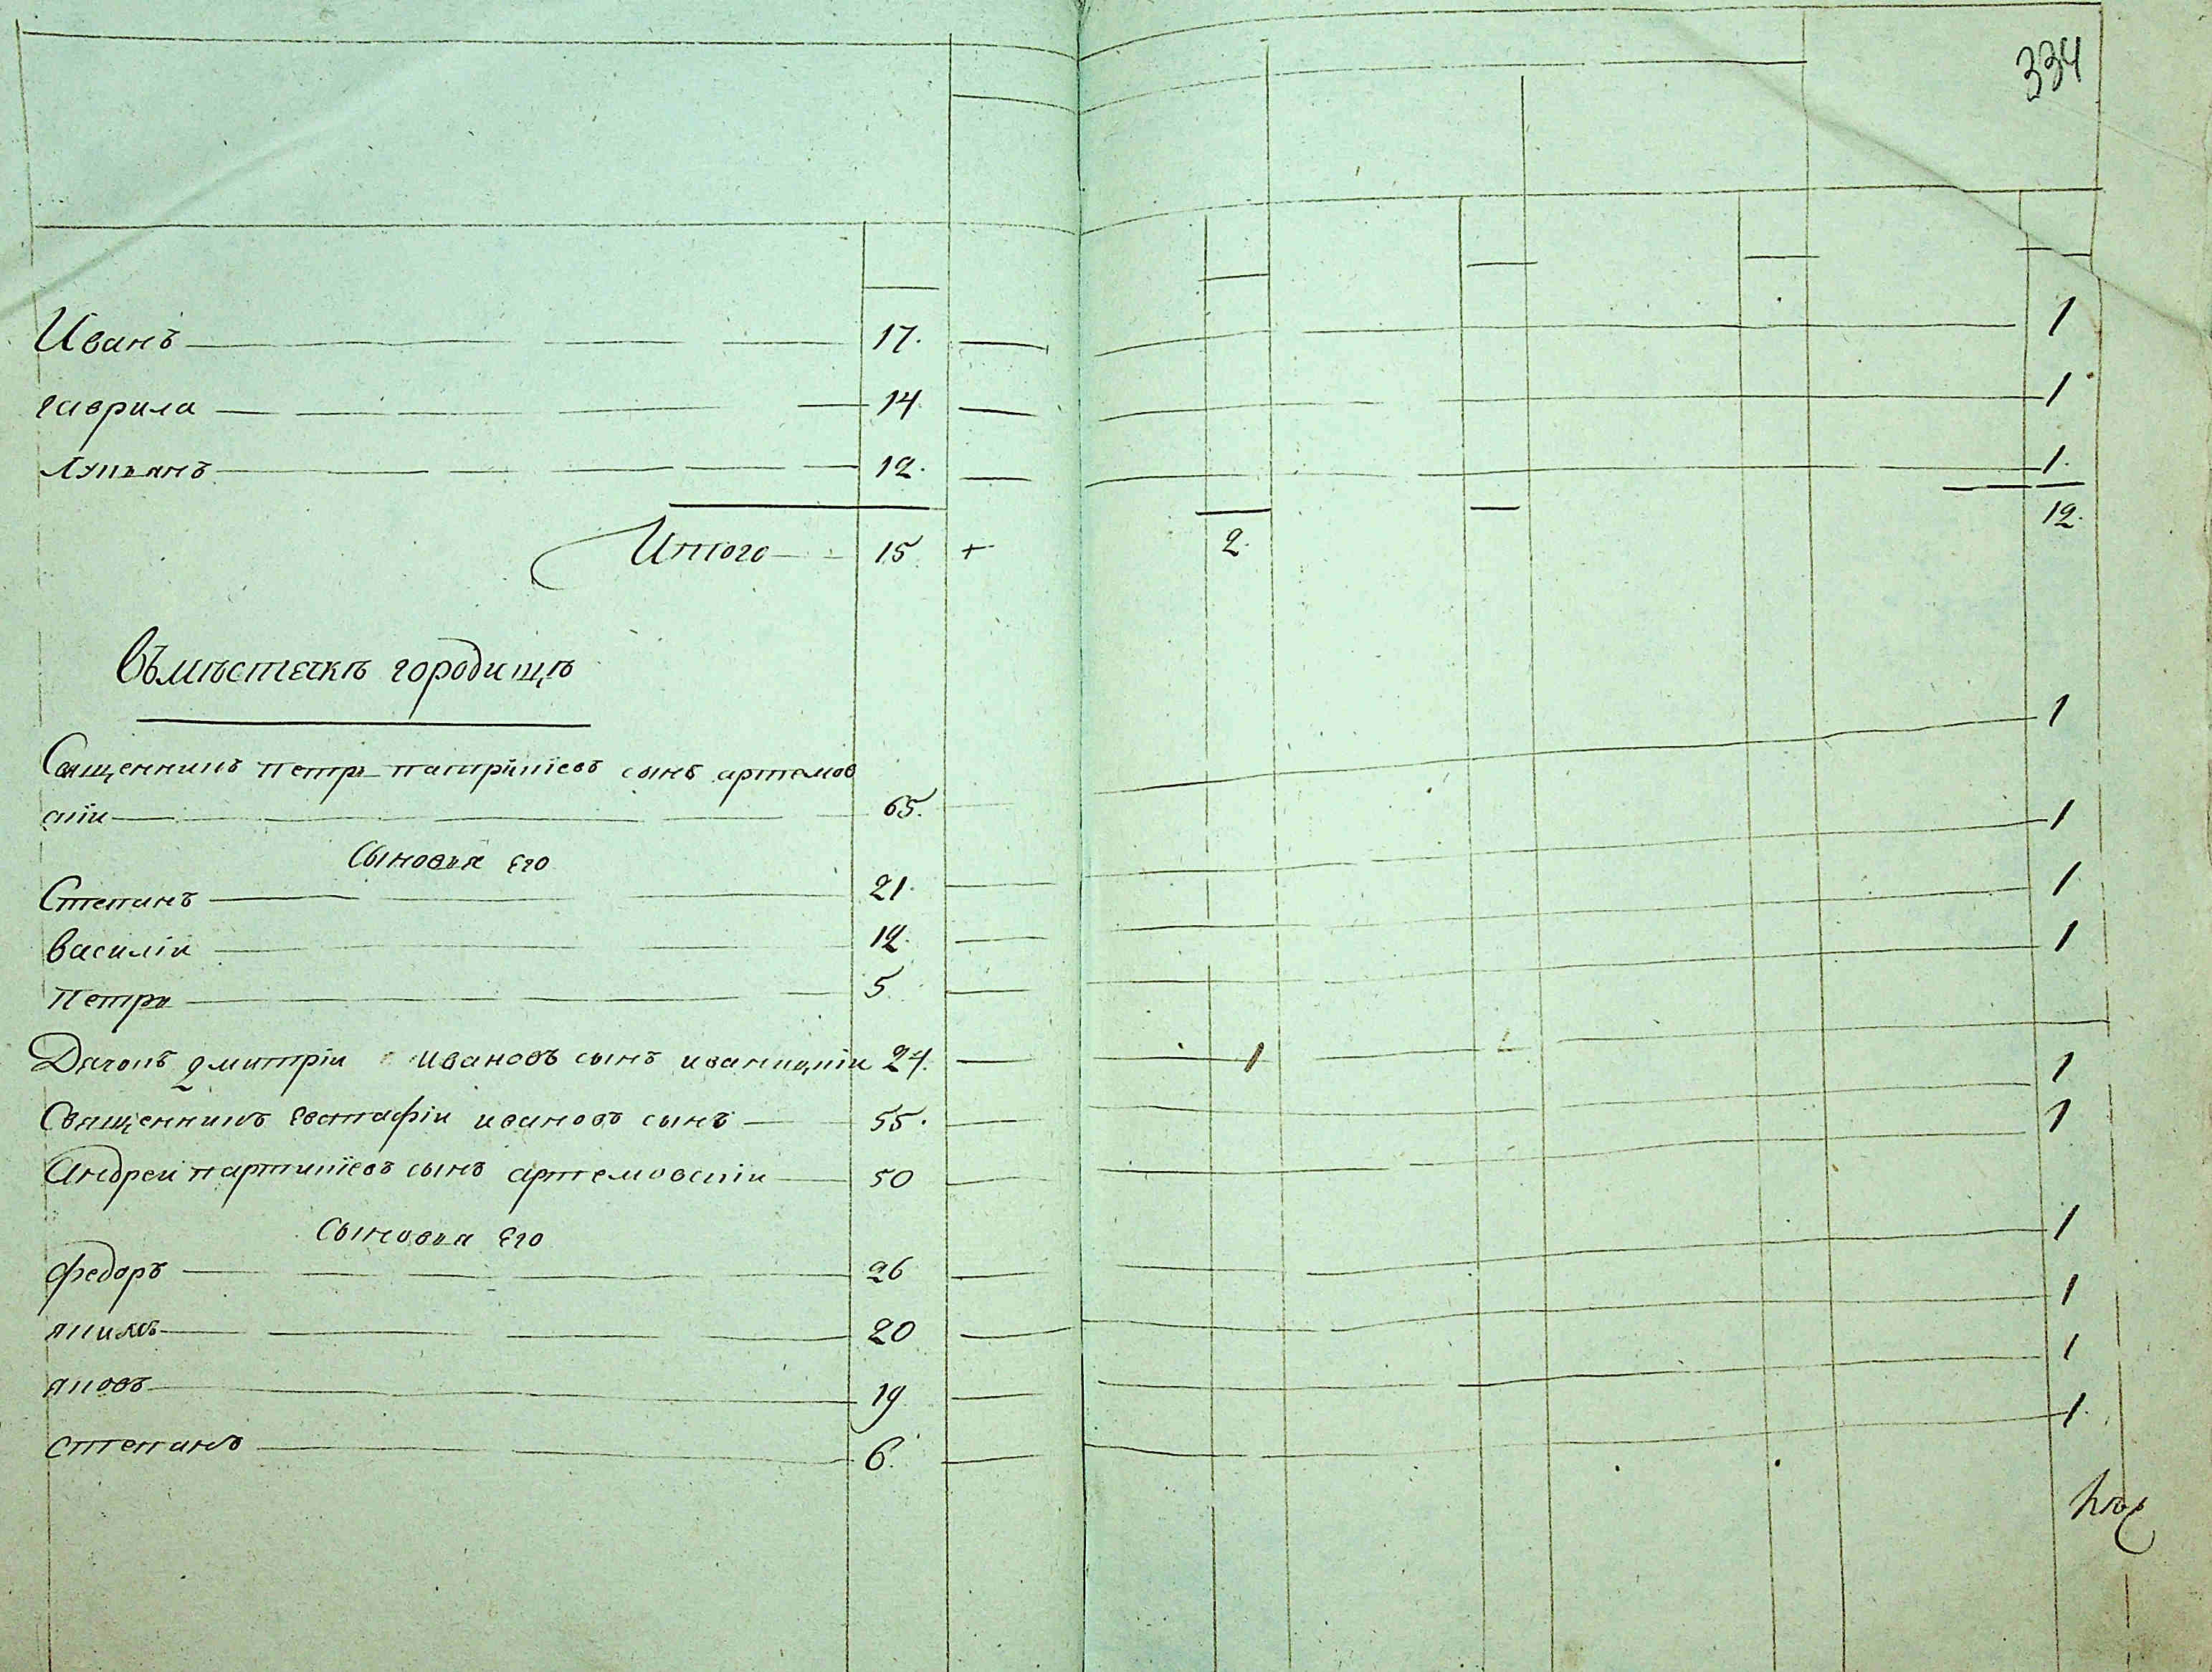 334
Иванъ 17. 1
гаврила 14 1
Лукъянъ 12. 1.
Итого 15 + 2. 12.
Въ мѣстечкѣ городищѣ
Священникъ петръ патрикіевъ сынъ артемов 1
скіи 65.
Сыновья Его 1
Степанъ 21. 1
василіи 12. 1
Петръ 5
Дячокъ дмитріи ивановъ сынъ иваницкіи 24. 1
Священникъ Евстафіи ивановъ сынъ 55. 1
Андреи партикіевъ сынъ артемовскіи 50 1
Сыновья Его
федоръ 26 1
якимъ 20 1
яковъ 19 1
степанъ 6. 1.